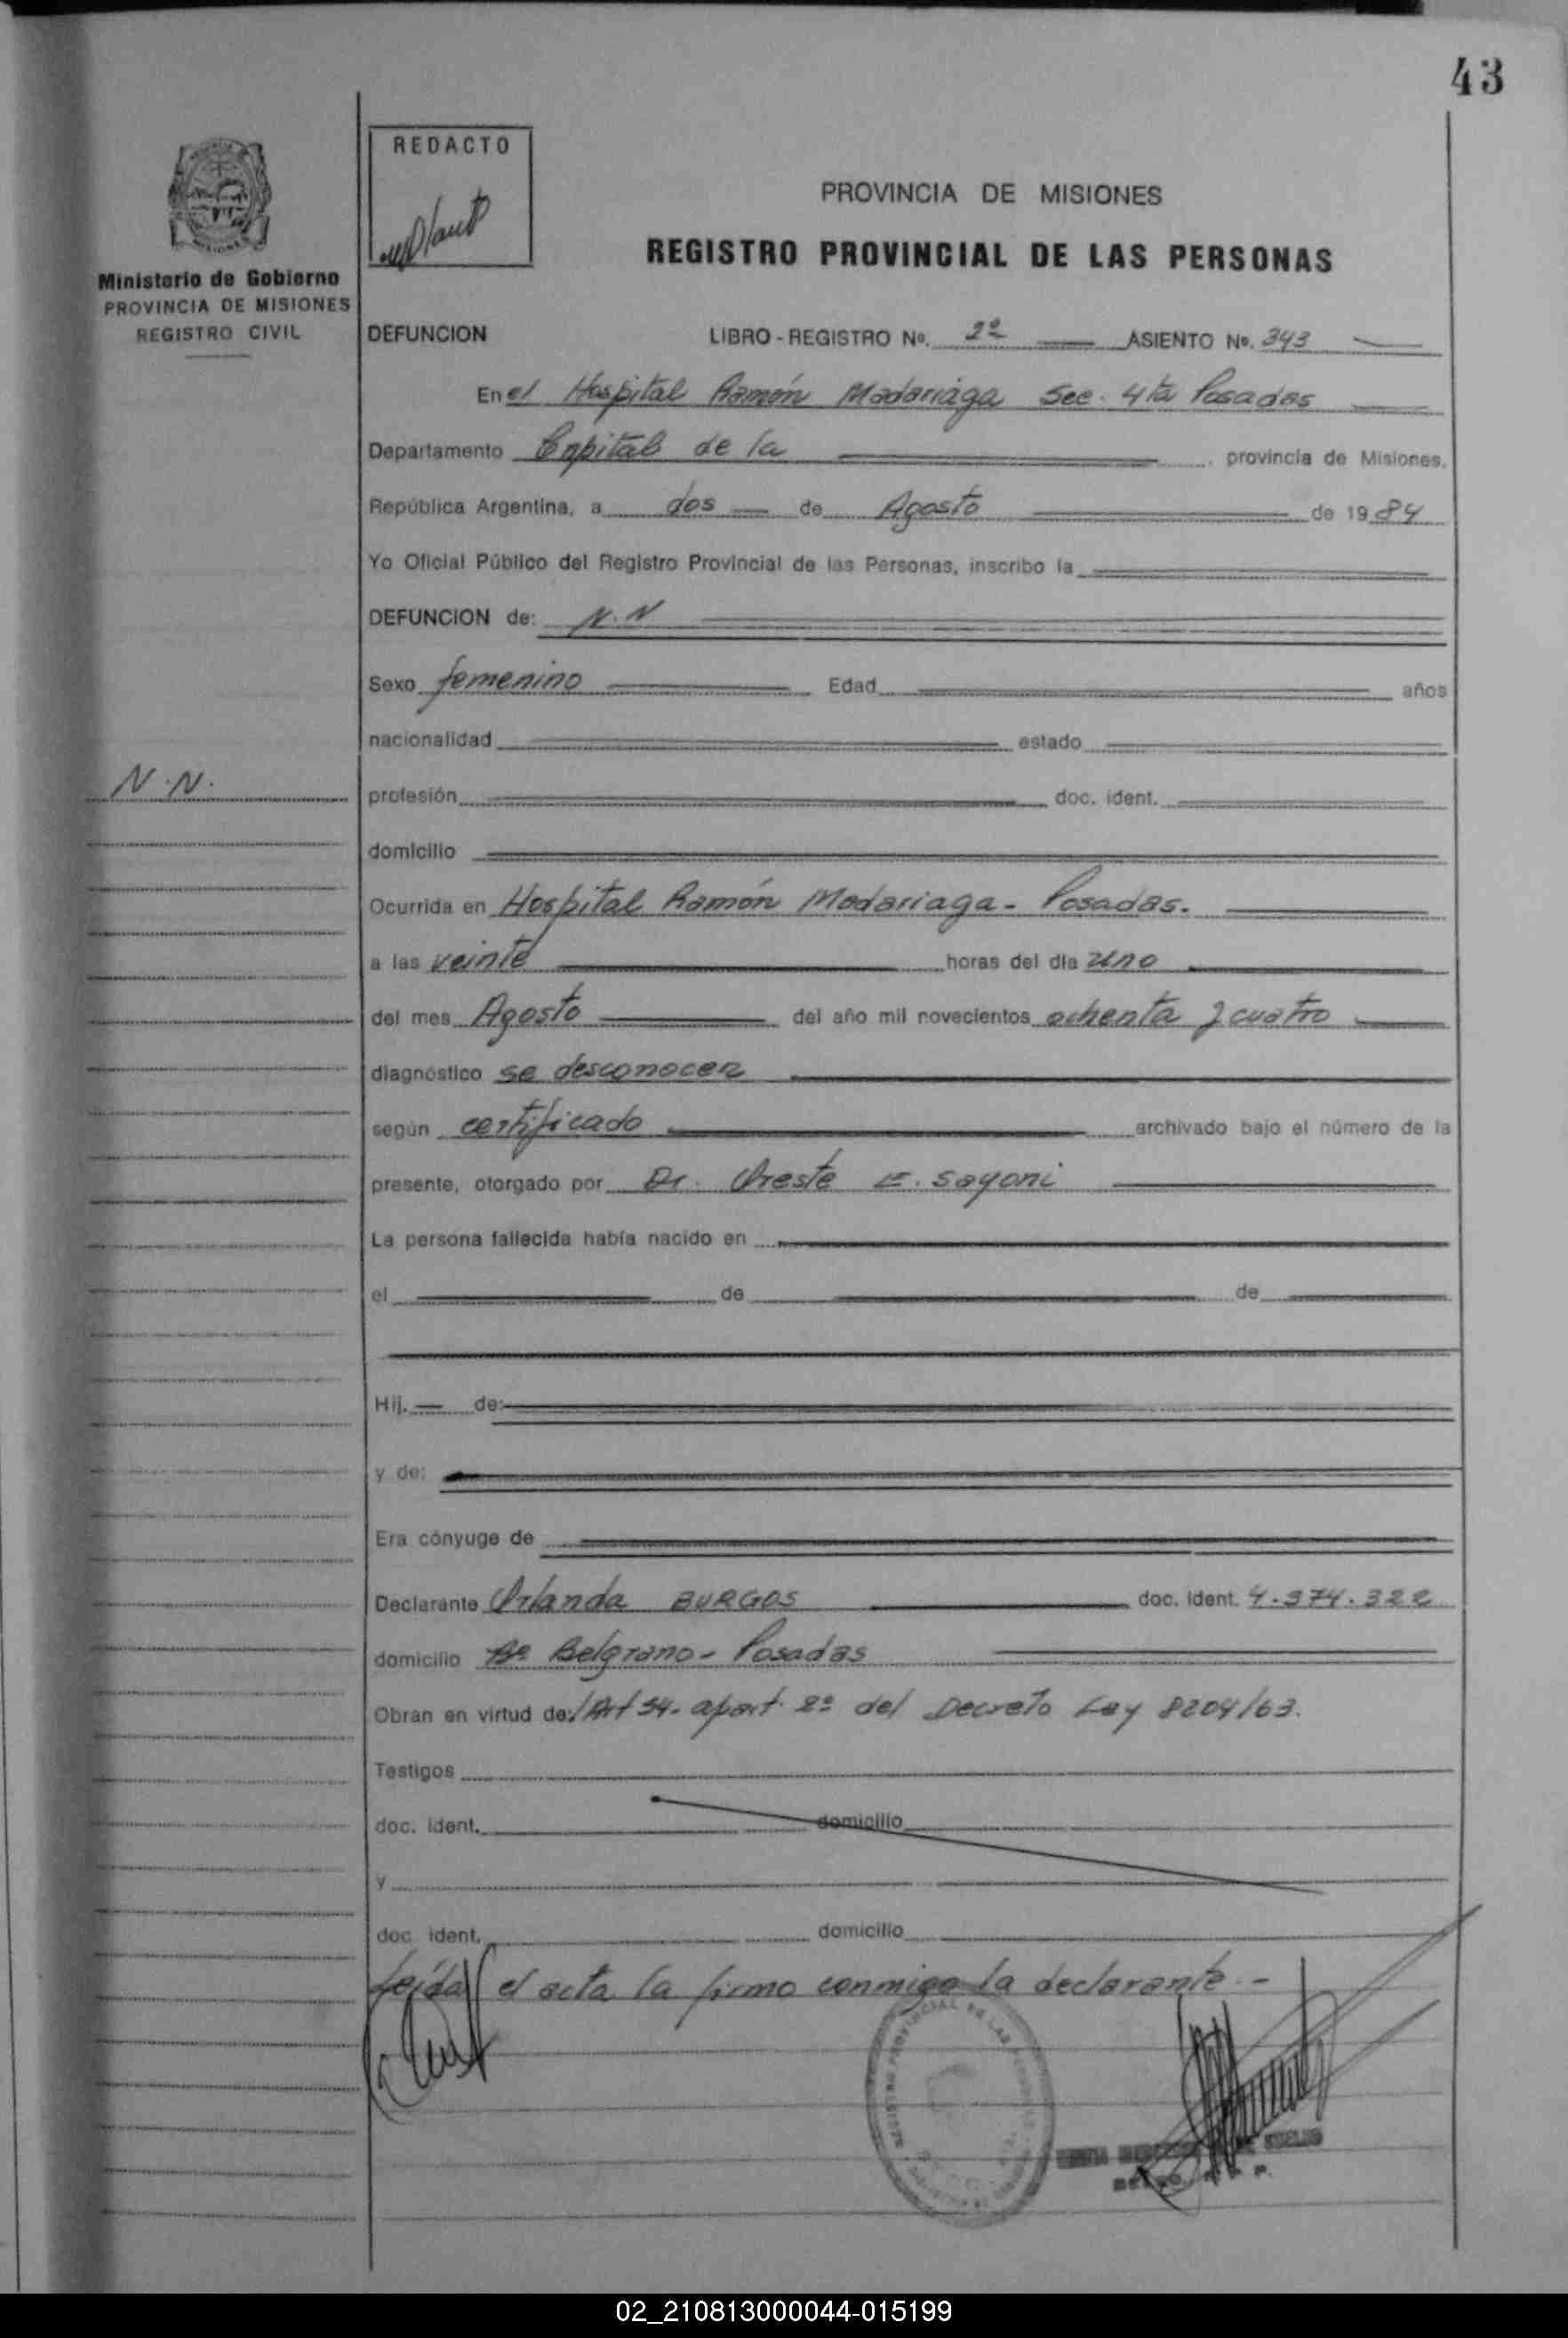 43
REDACTO
PROVINCIA DE MISIONES
REGISTRO PROVINCIAL DE LAS PERSONAS
Ministerio de Gobierno
PROVINCIA DE MISIONES
REGISTRO CIVIL
DEFUNCION LIBRO - REGISTRO No. 2º ASIENTO No. 343
En el Hospital Ramón Madariaga Sec. 4ta Posadas
Departamento Capital de la provincia de Misiones,
República Argentina, a dos de Agosto de 1984
Yo Oficial Público del Registro Provincial de las Personas, inscribo la
DEFUNCION de: N.N
Sexo femenino Edad años
nacionalidad estado
N.N.
profesión doc. ident.
domicilio
Ocurrida en Hospital Ramón Madariaga - Posadas.
a las veinte horas del día uno
del mes Agosto del año mil novecientos ochenta y cuatro
diagnóstico se desconocen
según certificado archivado bajo el número de la
presente, otorgado por Dr. Oreste E. Sayoni
La persona fallecida había nacido en
el de de
Hij. de:
y de:
Era cónyuge de
Declarante Orlanda BURGOS doc. ident. 4.374.322
domicilio Bº Belgrano - Posadas
Obran en virtud de: Art 54. apart. 2º del Decreto Ley 8204/63.
Testigos
doc. ident. domicilio
y
doc. ident. domicilio
Leída el acta la firma conmigo la declarante. -
02_210813000044-015199